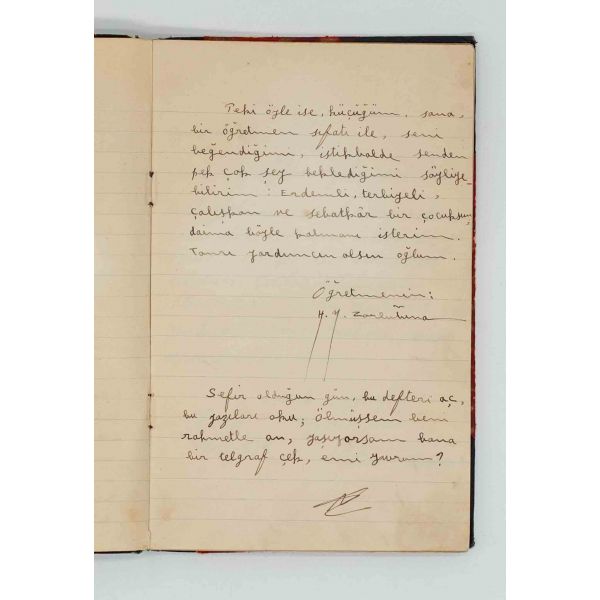 Peki öyle ise, küçüğüm, sana,
bir öğretmen sıfatı ile, seni
beğendiğimi, istikbalde senden
pek çok şey beklediğimi söyliye-
bilirim: Erdemli, terbiyeli,
çalışkan ve sebatkâr bir çocuksun,
daima böyle kalmanı isterim.
Tanrı yardımcın olsun oğlum.
Öğretmenin:
H. N. Zorlutuna
Sefir olduğun gün, bu defteri aç,
bu yazıları oku; Ölmüşsem beni
rahmetle an, yaşıyorsam bana
bir telgraf çek, emi yavrum?